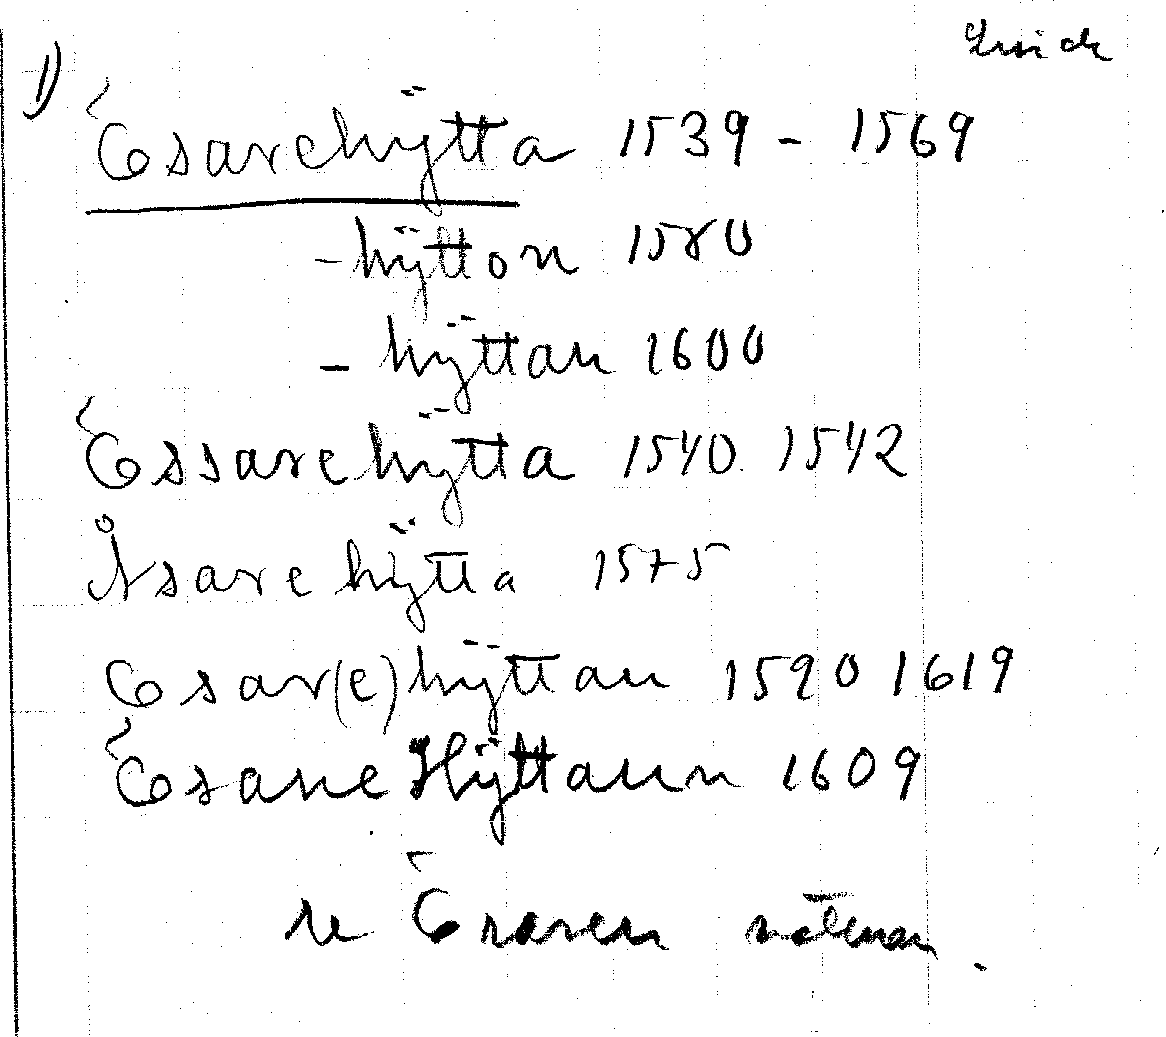 1)
Ösarehÿtta 1539 - 1569
-hÿtton 1580
- hÿttan 1600
Össarehÿtta 1540 1542
Åsarehÿtta 1575
Osar(e)hÿttan 1590 1619
Ösare Hÿttann 1609
se Ösaren